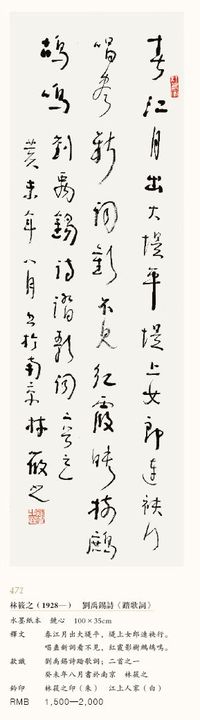 春江月出大堤平堤上女郎連袂行
唱盡新詞歡不見紅霞映樹鷓
鴣鳴 劉禹錫詩踏歌詞二首之一
癸未年八月書於南京林筱之
472
林筱之(1928—) 劉禹錫詩《踏歌詞》
水墨紙本 鏡心 100×35cm
釋文 春江月出大堤平，堤上女郎連袂行。
唱盡新詞看不見，紅霞影樹鷓鴣鳴。
款識 劉禹錫詩踏歌詞；二首之一
癸未年八月書於南京 林筱之
鈐印 林筱之印（朱） 江上人家（白）
RMB 1,500—2,000